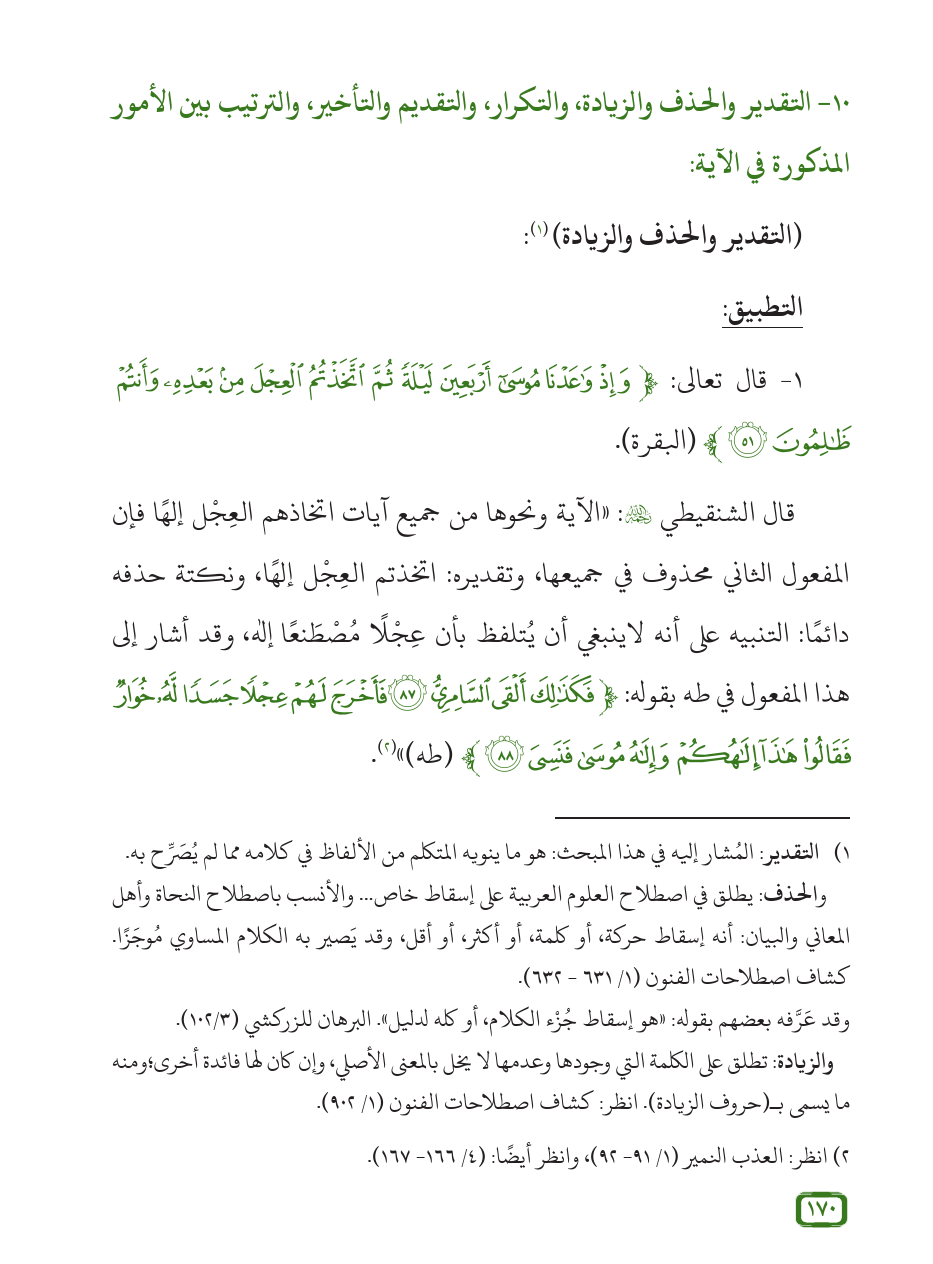 ١٠- التقدير والحذف والزيادة، والتكرار، والتقديم والتأخير، والترتيب بين الأمور
المذكورة في الآية:
(التقدير والحذف والزيادة)(١):
التطبيق:
١- قال تعالى: ﴿ وَإِذْ وَٰعَدْنَا مُوسَىٰٓ أَرْبَعِينَ لَيْلَةً ثُمَّ ٱتَّخَذْتُمُ ٱلْعِجْلَ مِنۢ بَعْدِهِۦ وَأَنتُمْ
ظَٰلِمُونَ ٥١ ﴾ (البقرة).
قال الشنقيطي رحمه الله: «الآية ونحوها من جميع آيات اتخاذهم العِجْل إلهًا فإن
المفعول الثاني محذوف في جميعها، وتقديره: اتخذتم العِجْل إلهًا، ونكتة حذفه
دائمًا: التنبيه على أنه لاينبغي أن يُتلفظ بأن عِجْلًا مُصْطَنعًا إلٰه، وقد أشار إلى
هذا المفعول في طه بقوله: ﴿ فَكَذَٰلِكَ أَلْقَى ٱلسَّامِرِىُّ ٨٧ فَأَخْرَجَ لَهُمْ عِجْلًا جَسَدًا لَّهُۥ خُوَارٌ
فَقَالُوا۟ هَٰذَآ إِلَٰهُكُمْ وَإِلَٰهُ مُوسَىٰ فَنَسِىَ ٨٨ ﴾ (طه)»(٢).
١) التقدير: المُشار إليه في هذا المبحث: هو ما ينويه المتكلم من الألفاظ في كلامه مما لم يُصَرِّح به.
والحذف: يطلق في اصطلاح العلوم العربية على إسقاط خاص... والأنسب باصطلاح النحاة وأهل
المعاني والبيان: أنه إسقاط حركة، أو كلمة، أو أكثر، أو أقل، وقد يَصير به الكلام المساوي مُوجَزًا.
كشاف اصطلاحات الفنون (١/ ٦٣١ - ٦٣٢).
وقد عَرَّفه بعضهم بقوله: «هو إسقاط جُزْء الكلام، أو كله لدليل». البرهان للزركشي (١٠٢/٣).
والزيادة: تطلق على الكلمة التي وجودها وعدمها لا يخل بالمعنى الأصلي، وإن كان لها فائدة أخرى؛ومنه
ما يسمى بـ(حروف الزيادة). انظر: كشاف اصطلاحات الفنون (١/ ٩٠٢).
٢) انظر: العذب النمير (١/ ٩١- ٩٢)، وانظر أيضًا: (٤/ ١٦٦- ١٦٧).
١٧٠